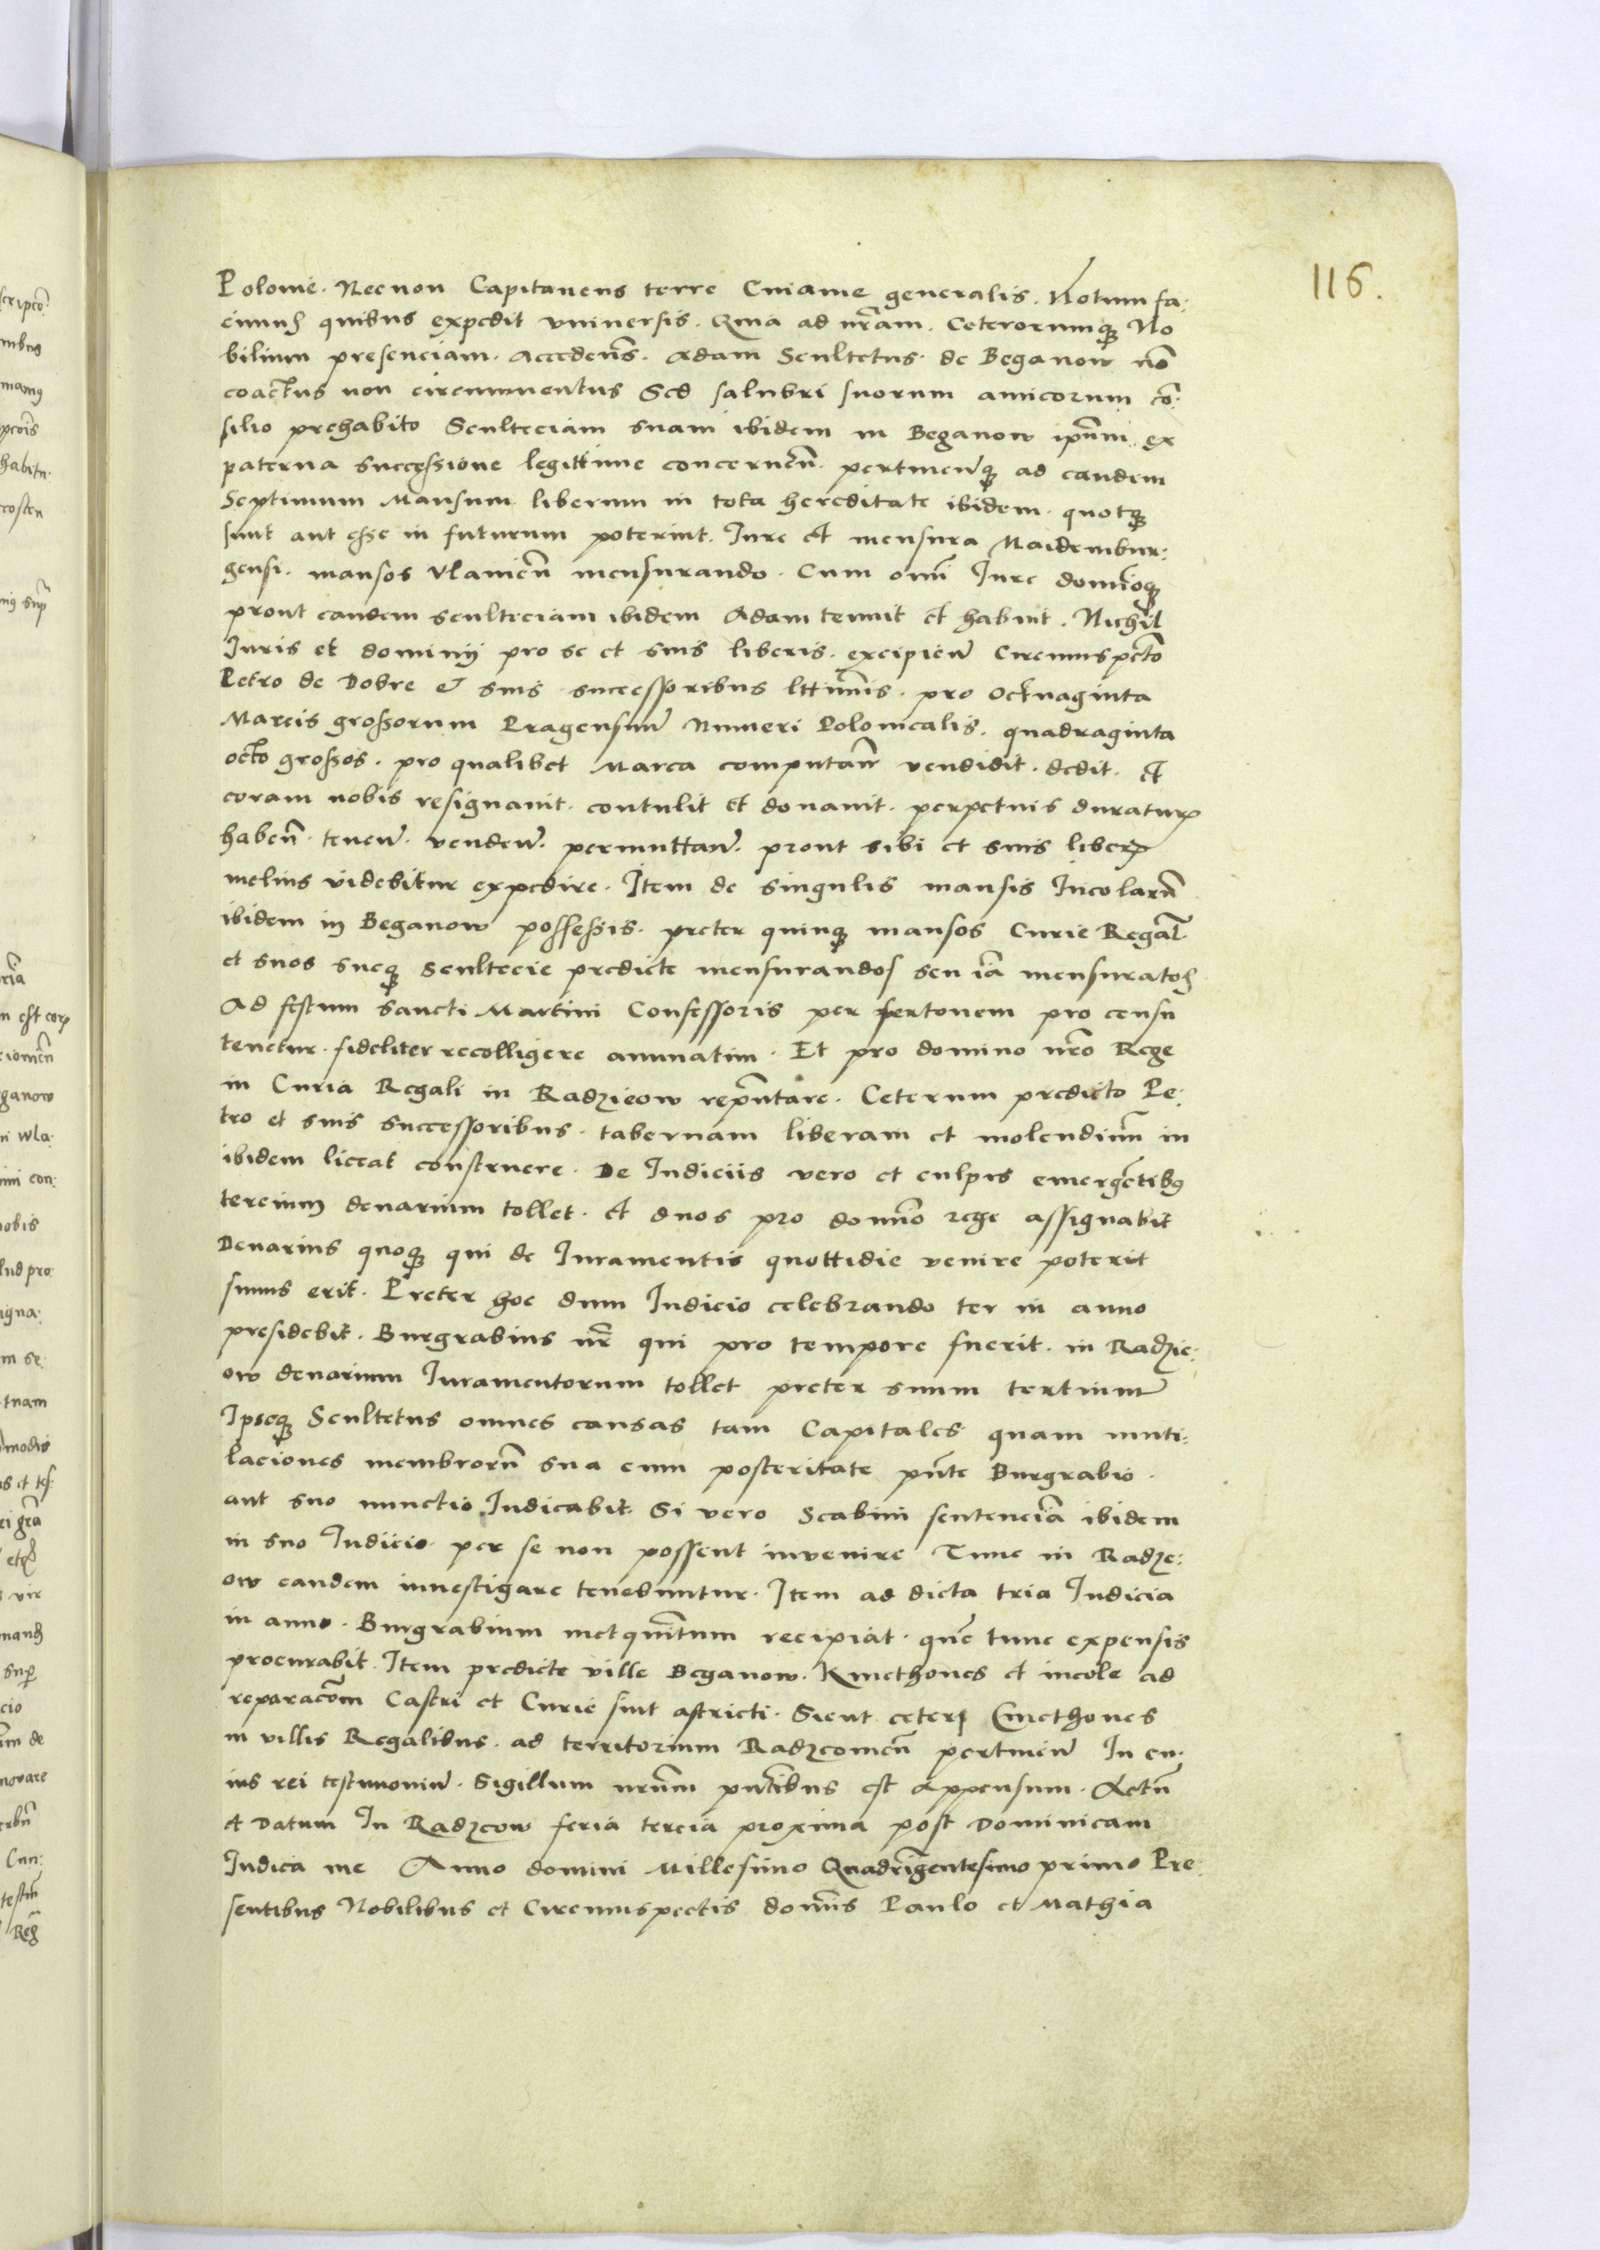 116.
Polonie. Necnon Capitaneus terre Cuiauie generalis. Notum fa:
cimus quibus expedit vniuersis. Quia ad nr̃am. Ceterorumq3 No
bilium presenciam. Accedens. Adam Scultetus de Beganow nõ
coactus non circumuentus Sed salubri suorum amicorum cõ:
silio prehabito Sculteciam suam ibidem in Beganow ipsum ex
paterna successione legittime concernen̄. pertinenq3 ad eandem
Septimum Mansum liberum in tota hereditate ibidem. quotq3
sunt aut esse in futurum poterint. Jure et mensura Maidembur:
gensi. mansos Vlamicen̄ mensurando. Cum omni Jure dominioq3
prout eandem sculteciam ibidem Adam tenuit et habuit. Nichil
Juris et dominij pro se et suis liberis. excipien̄ Circumspecto
Petro de Dobre et suis successoribus lttimis. pro Octuaginta
Marcis grossorum Pragensium Numeri Polonicalis. quadraginta
octo grossos. pro qualibet Marca computan̄ vendidit. dedit. et
coram nobis resignauit. contulit et donauit. perpetuis duratur̃
haben̄. tenen̄. venden̄. permuttan̄. prout sibi et suis liber̃
melius videbitur expedire. Item de singulis mansis Incolarū
ibidem in Beganow possessis. preter quinq3 mansos Curie Regal̃
et suos sueq3 scultecie predicte mensurandos seu iã mensuratos
Ad festum Sancti Martini Confessoris per fertonem pro censu
tenetur. fideliter recolligere annuatim. Et pro domino nr̃o Rege
in Curia Regali in Radzieow repñtare. Ceterum predicto Pe:
tro et suis successoribus. tabernam liberam et molendinū in
ibidem liceat construere. De Iudiciis vero et culpis emergẽtibus
tercium denarium tollet. et duos pro domino rege assignabit
Denarius quoq3 qui de Iuramentis quottidie venire poterit
suus erit. Preter hoc dum Iudicio celebrando ter in anno
presidebit. Burgrabius nr̃ qui pro tempore fuerit. in Radzie:
ow denarium Iuramentorum tollet preter suum tertium
Ipseq3 Scultetus omnes causas tam Capitales quam muti:
laciones membrorū sua cum posteritate pñte Burgrabio.
aut suo nunctio Iudicabit. Si vero Scabini sentenciã ibidem
in suo Iudicio per se non possent inuenire Tunc in Radze:
ow eandem inuestigare tenebuntur. Item ad dicta tria Iudicia
in anno. Burgrabium metquintum recipiat. quẽ tunc expensis
procurabit. Item predicte ville Beganow. Kmethones et incole ad
reparacõem Castri et Curie sint astricti. Sicut ceteri Cmethones
in villis Regalibus. ad territorium Radzeouien̄ pertinen̄ In cu:
ius rei testimonium. Sigillum nr̃um pñtibus est appensum. Actū
et Datum In Radzeow feria tercia proxima post Dominicam
Iudica me Anno domini Millesimo Quadringentesimo primo Pre:
sentibus Nobilibus et Circumspectis dominis Paulo et Mathia